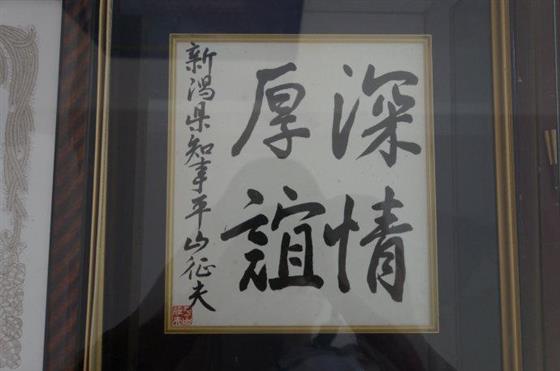 深情
厚誼
新潟県知事平山征夫